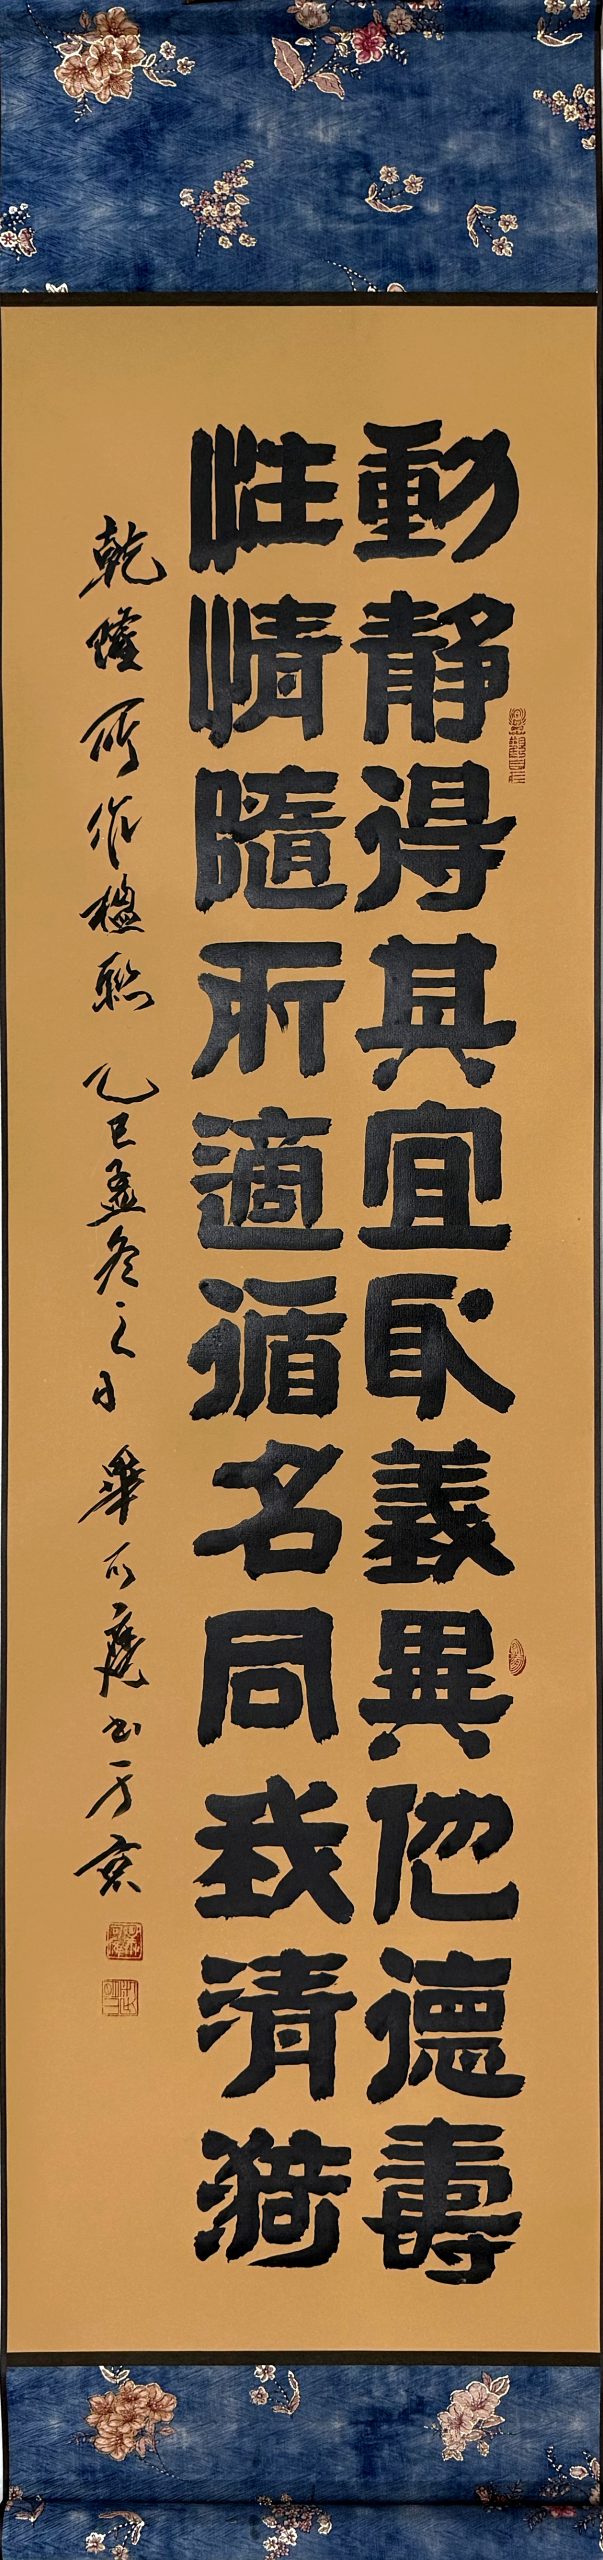 動靜得其宜取義異他德壽
性情隨所適循名同我清漪
乾隆所作楹聯 乙巳孟冬之月 畢可庭书于京